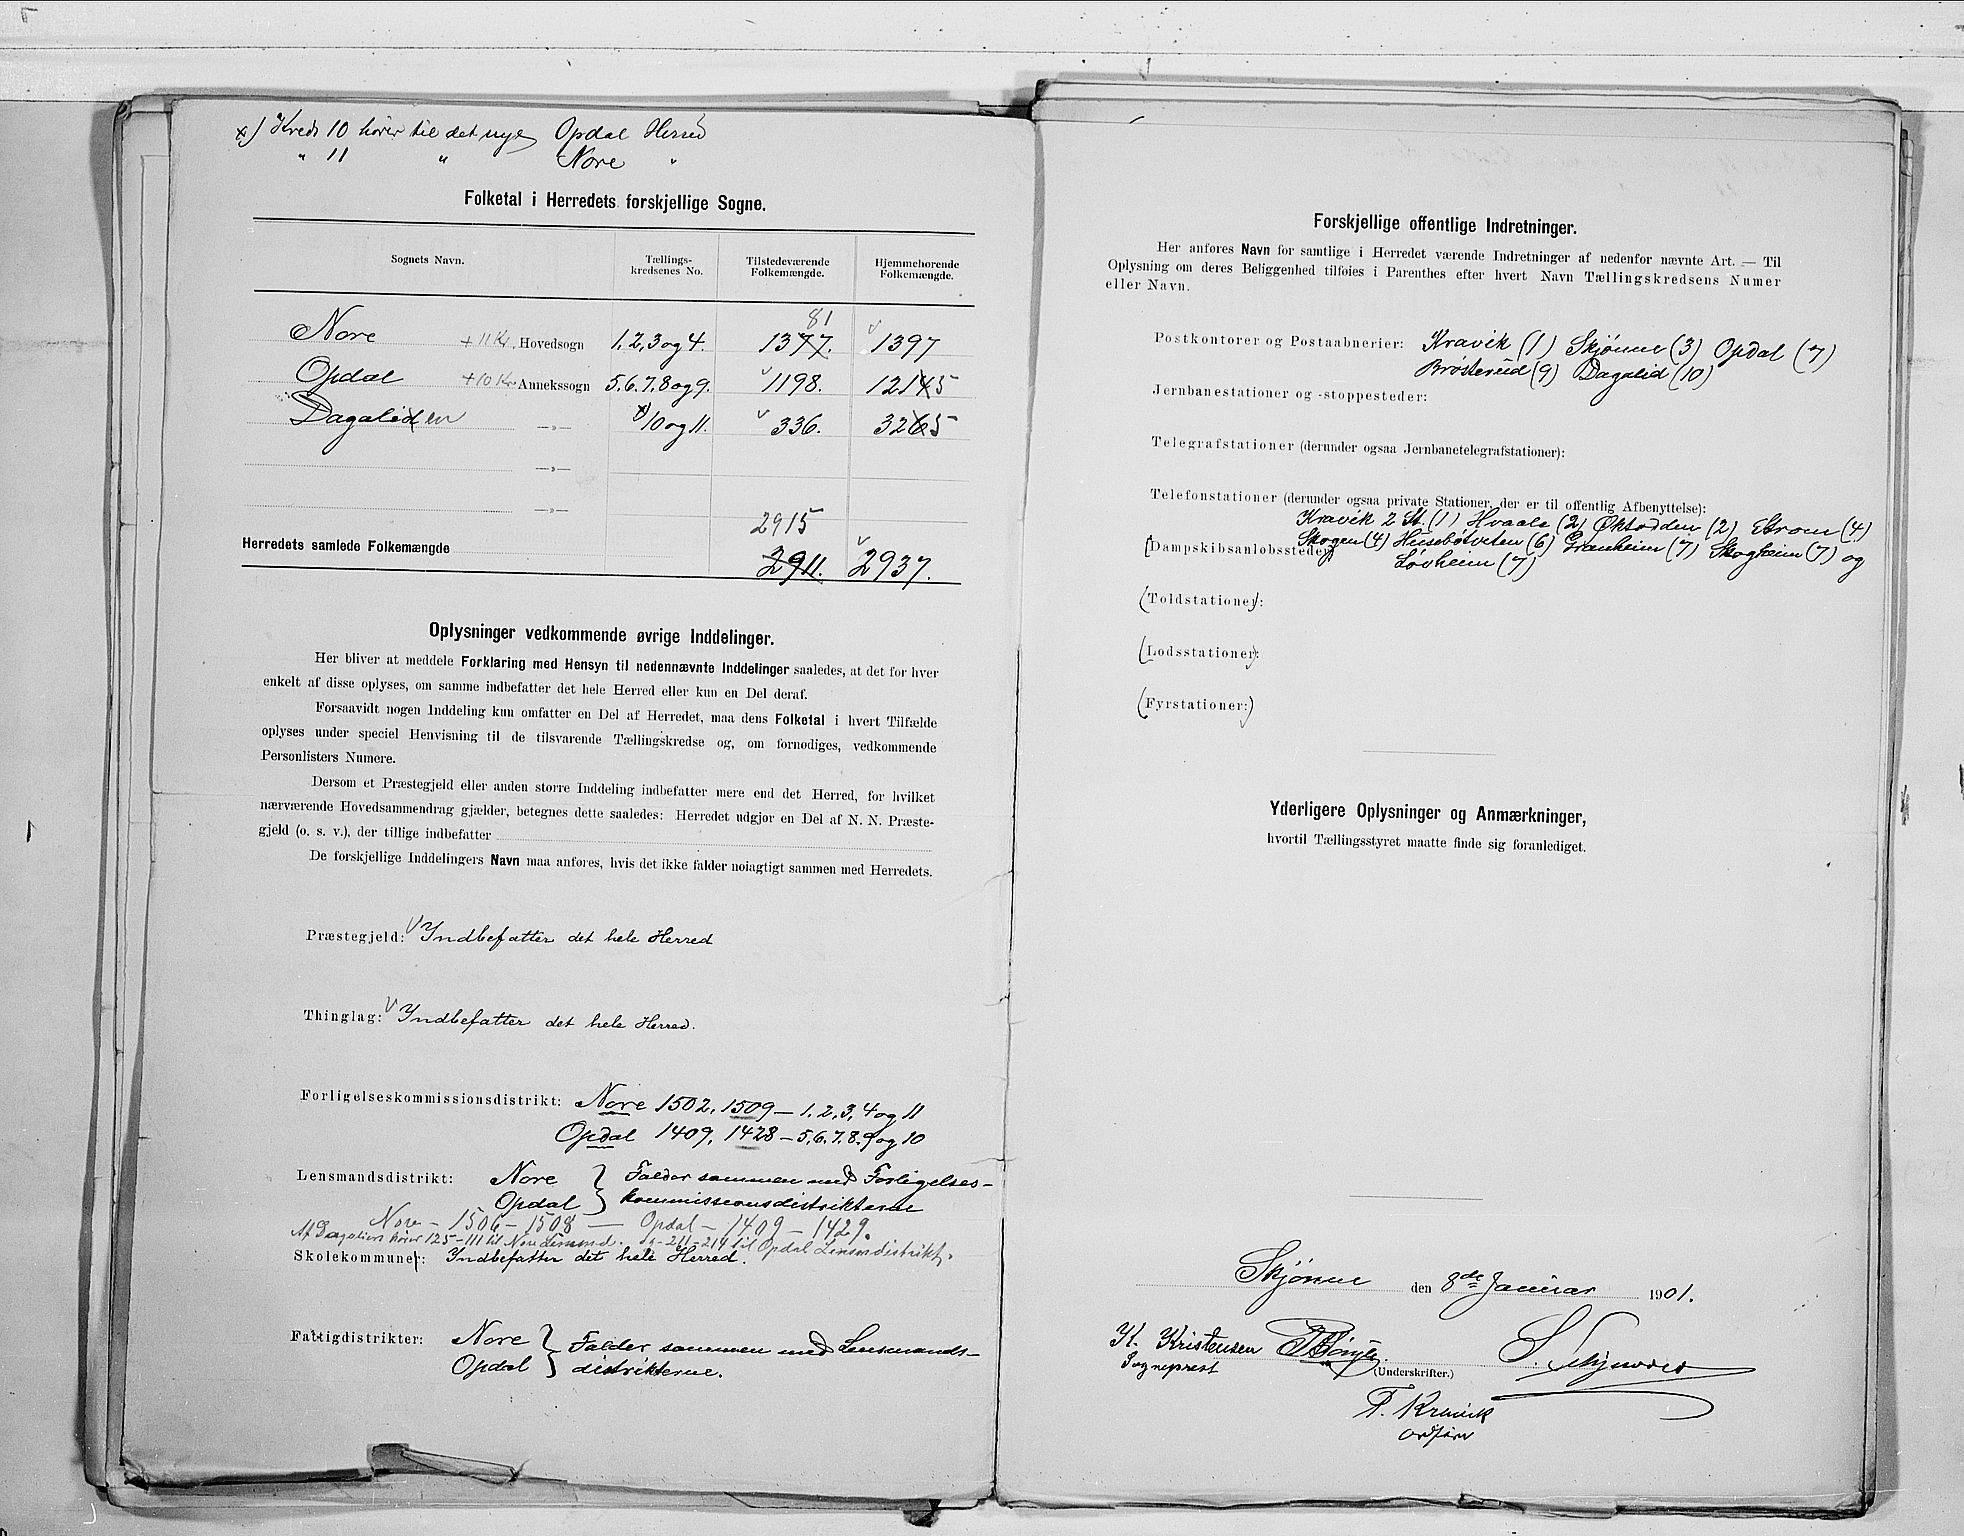 x) Kreds 10 hører til det nye Opdal Herred
" 11 " Nore "
Folketal i Herredets forskjellige Sogne.
Sognets Navn. Tællings-kredsenes No. Tilstedeværende Folkemængde. Hjemmehørende Folkemængde.
81
Nore + 11 Kr. Hovedsogn 1, 2, 3 og 4. 1377. 1397
Opdal + 10 Kr. Annekssogn 5, 6, 7, 8 og 9. 1198. 12145
Dagaliden —»— x) 10 og 11. 336. 3265
—»—
—»—
2915
Herredets samlede Folkemængde 2911. 2937.
Oplysninger vedkommende øvrige Inddelinger.
Her bliver at meddele Forklaring med Hensyn til nedennævnte Inddelinger saaledes, at det for hver
enkelt af disse oplyses, om samme indbefatter det hele Herred eller kun en Del deraf.
Forsaavidt nogen Inddeling kun omfatter en Del af Herredet, maa dens Folketal i hvert Tilfælde
oplyses under speciel Henvisning til de tilsvarende Tællingskredse og, om fornødiges, vedkommende
Personlisters Numere.
Dersom et Præstegjeld eller anden større Inddeling indbefatter mere end det Herred, for hvilket
nærværende Hovedsammendrag gjælder, betegnes dette saaledes: Herredet udgjør en Del af N. N. Præste-
gjeld (o. s. v.), der tillige indbefatter
De forskjellige Inddelingers Navn maa anføres, hvis det ikke falder nøiagtigt sammen med Herredets.
Præstegjeld: Indbefatter det hele Herred
Thinglag: Indbefatter det hele Herred.
Forligelseskommissionsdistrikt: Nore 1502, 1509 — 1, 2, 3, 4 og 11
Opdal 1409, 1428 — 5, 6, 7, 8, 9 og 10
Lensmandsdistrikt: Nore } Falder sammen med Forligelses-
Opdal } kommissionsdistrikterne
Nore — 1506 — 1508 — Opdal — 1409 — 1429.
Af Dagaliens hører 125-111 til Nore Lensmd. og 211-214 til Opdal Lensmdistrikt.
Skolekommuner: Indbefatter det hele Herred.
Fattigdistrikter: Nore } Falder sammen med Lensmands-
Opdal } distrikterne.
Forskjellige offentlige Indretninger.
Her anføres Navn for samtlige i Herredet værende Indretninger af nedenfor nævnte Art. — Til
Oplysning om deres Beliggenhed tilføies i Parenthes efter hvert Navn Tællingskredsens Numer
eller Navn.
Postkontorer og Postaabnerier: Kravik (1) Skjønne (3) Opdal (7)
Brøsterud (9) Dagalid (10)
Jernbanestationer og -stoppesteder:
Telegrafstationer (derunder ogsaa Jernbanetelegrafstationer):
Telefonstationer (derunder ogsaa private Stationer, der er til offentlig Afbenyttelse):
Kravik 2 St. (1) Hvaale (2) Øktodden (2) Strom (4)
Skogen (4) Husebøtveten (6) Granheim (7) Skogheim (7) og
(Dampskibsanløbssteder) Løvheim (7)
(Toldstationer):
(Lodsstationer):
(Fyrstationer:)
Yderligere Oplysninger og Anmærkninger,
hvortil Tællingsstyret maatte finde sig foranlediget.
Skjønne den 8de Januar 1901.
K. Kristensen
Sogneprest
(Underskrifter.)
T. Kravik
ordfører